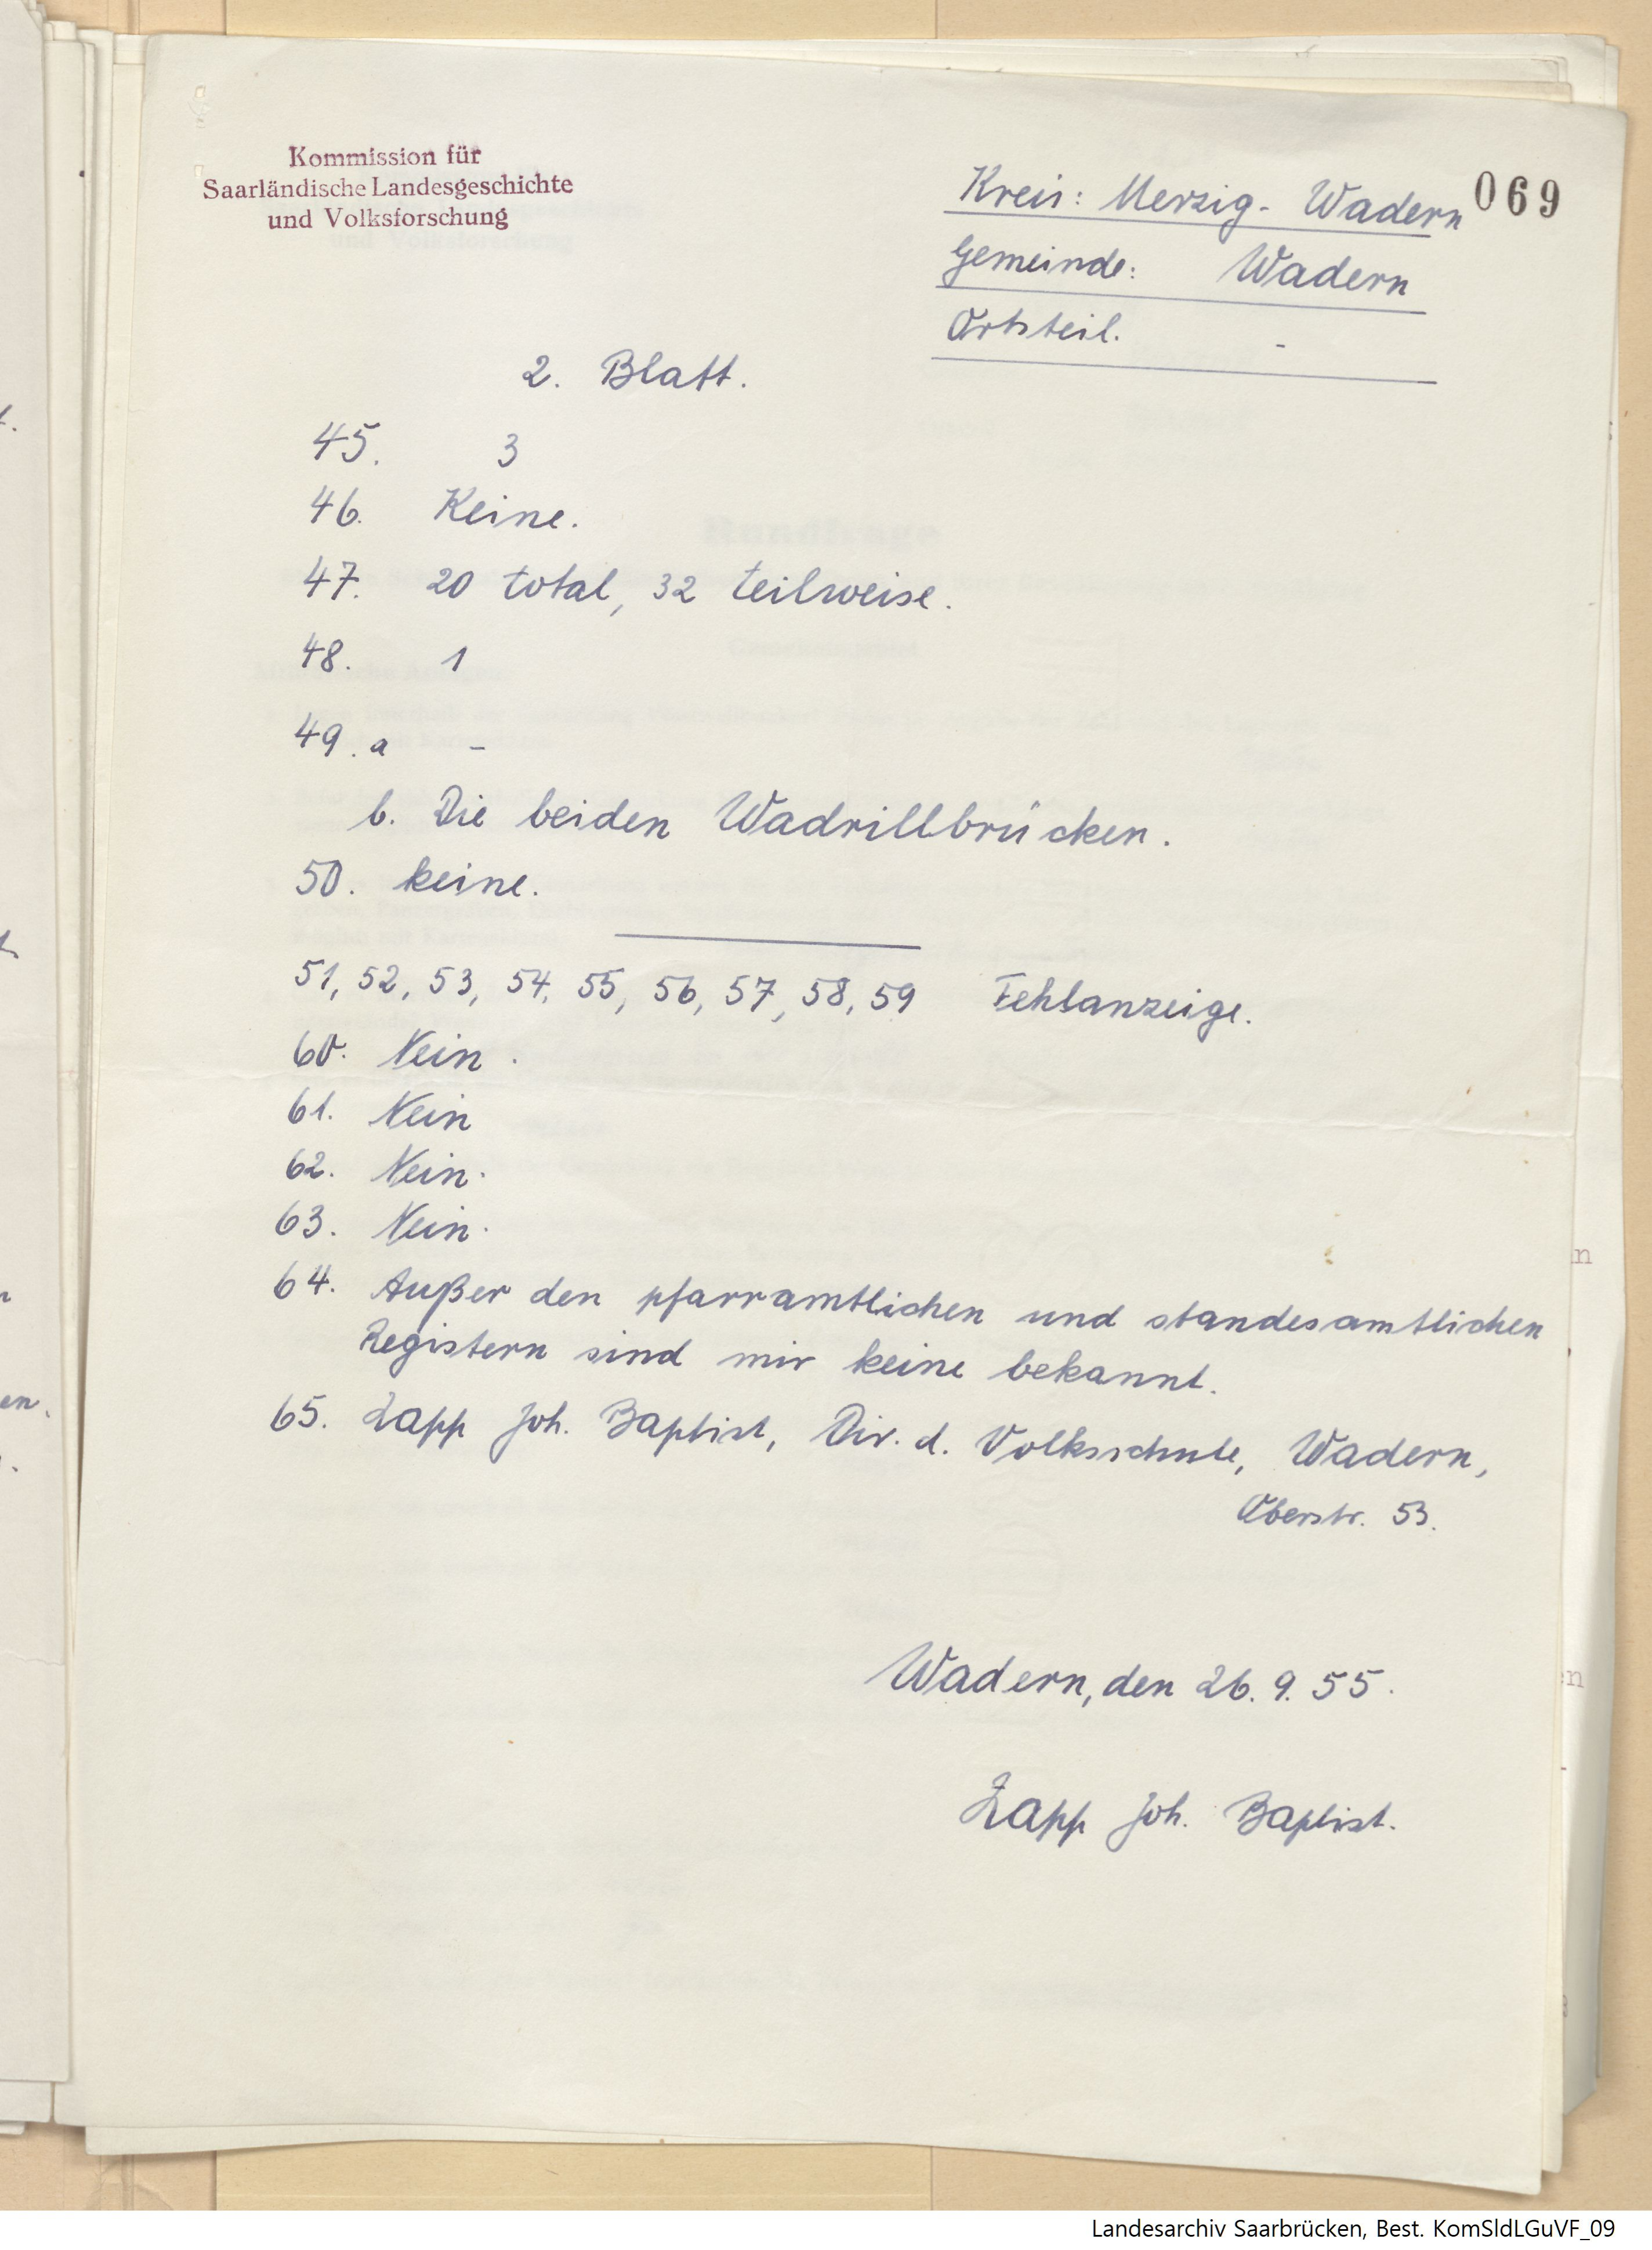 Kommission für
Saarländische Landesgeschichte
und Volksforschung
069
Kreis: Merzig-Wadern
Gemeinde: Wadern
Ortsteil. -
2. Blatt.
45. 3
46. Keine.
47. 20 total, 32 teilweise.
48. 1
49. a -
b. Die beiden Wadrillbrücken.
50. keine.
51, 52, 53, 54, 55, 56, 57, 58, 59 Fehlanzeige.
60. Nein.
61. Nein
62. Nein.
63. Nein.
64. Außer den pfarramtlichen und standesamtlichen
Registern sind mir keine bekannt.
65. Zapp Joh. Baptist, Dir. d. Volksschule, Wadern,
Oberstr. 53.
Wadern, den 26. 9. 55.
Zapp Joh. Baptist.
Landesarchiv Saarbrücken, Best. KomSldLGuVF_09